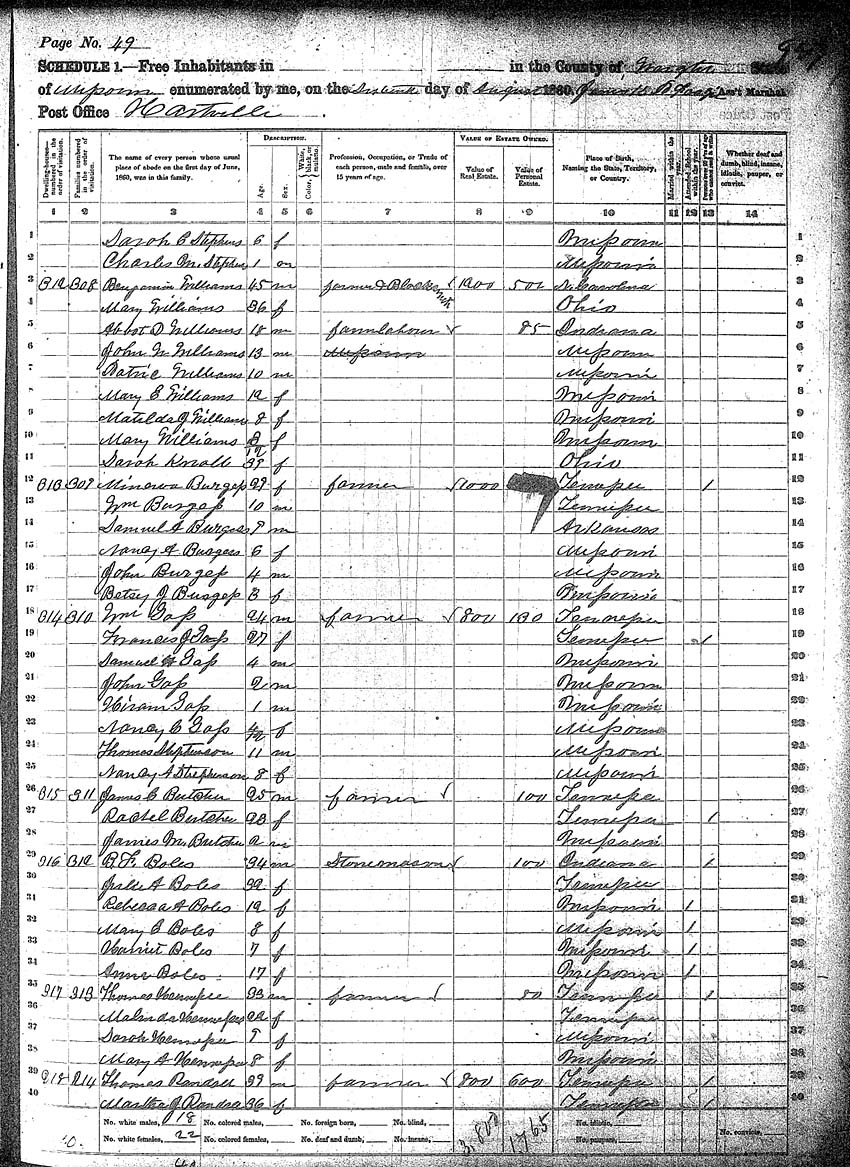 Page No. 49
SCHEDULE 1.—Free Inhabitants in in the County of State
of Missouri enumerated by me, on the day of August 1860. Ass't Marshal.
Post Office Hartville
DESCRIPTION. VALUE OF ESTATE OWNED.
Dwelling-houses—numbered in the order of visitation.
Families numbered in the order of visitation.
The name of every person whose usual place of abode on the first day of June, 1860, was in this family.
Age.
Sex.
Color, White, black, or mulatto.
Profession, Occupation, or Trade of each person, male and female, over 15 years of age.
Value of Real Estate.
Value of Personal Estate.
Place of Birth, Naming the State, Territory, or Country.
Married within the year.
Attended School within the year.
Whether deaf and dumb, blind, insane, idiotic, pauper, or convict.
1 2 3 4 5 6 7 8 9 10 11 12 13 14
1 Sarah C Stephens 6 f Missouri 1
2 Charles M. Stephens 1 m Missouri 2
3 312 308 Benjamin Williams 45 m farmer & Blacksmith 1200 500 N. Carolina 3
4 Mary Williams 36 f Ohio 4
5 Abbot D Williams 18 m farm labour 85 Indiana 5
6 John N Williams 13 m Missouri Missouri 6
7 Williams 10 m Missouri 7
8 Mary E Williams 12 f Missouri 8
9 Matilda J Williams 8 f Missouri 9
10 Mary Williams 3/12 f Missouri 10
11 Sarah Knoll 39 f Ohio 11
12 313 309 Minerva Burgess 29 f farmer 1000 Tennessee 1 12
13 Wm Burgess 10 m Tennessee 13
14 Samuel A Burgess m Arkansas 14
15 Nancy A Burgess 6 f Missouri 15
16 John Burgess 4 m Missouri 16
17 Betsy J Burgess 3 f Missouri 17
18 314 310 Wm Gass 24 m farmer 800 130 Tennessee 18
19 Francis J Gass 27 f Tennessee 1 19
20 Samuel Gass 4 m Missouri 20
21 John Gass 2 m Missouri 21
22 Hiram Gass 1 m Missouri 22
23 Nancy C Gass 4/12 f Missouri 23
24 Thomas Stephenson 11 m Missouri 24
25 Nancy A Stephenson 8 f Missouri 25
26 315 311 James C Butcher 25 m farmer 100 Tennessee 26
27 Rachel Butcher 23 f Tennessee 1 27
28 James M. Butcher 2 m Missouri 28
29 316 312 B. F. Boles 34 m Stonemason 100 Indiana 1 29
30 Julia A Boles 32 f Tennessee 30
31 Rebecca A Boles 12 f Missouri 1 31
32 Mary E Boles 8 f Missouri 1 32
33 Harriet Boles 7 f Missouri 1 33
34 Boles 17 f Missouri 1 34
35 317 313 Thomas 33 m farmer 80 Tennessee 1 35
36 Malinda 22 f Tennessee 36
37 Sarah f Missouri 37
38 Mary A 8 f Missouri 38
39 318 314 Thomas Randall 39 m farmer 800 600 Tennessee 1 39
40 Martha J Randall 36 f Tennessee 1 40
No. white males, 18 No. colored males, No. foreign born, No. blind, 3,800 1765 No. idiotic,
No. white females, 22 No. colored females, No. deaf and dumb, No. insane, No. paupers, No. convicts,